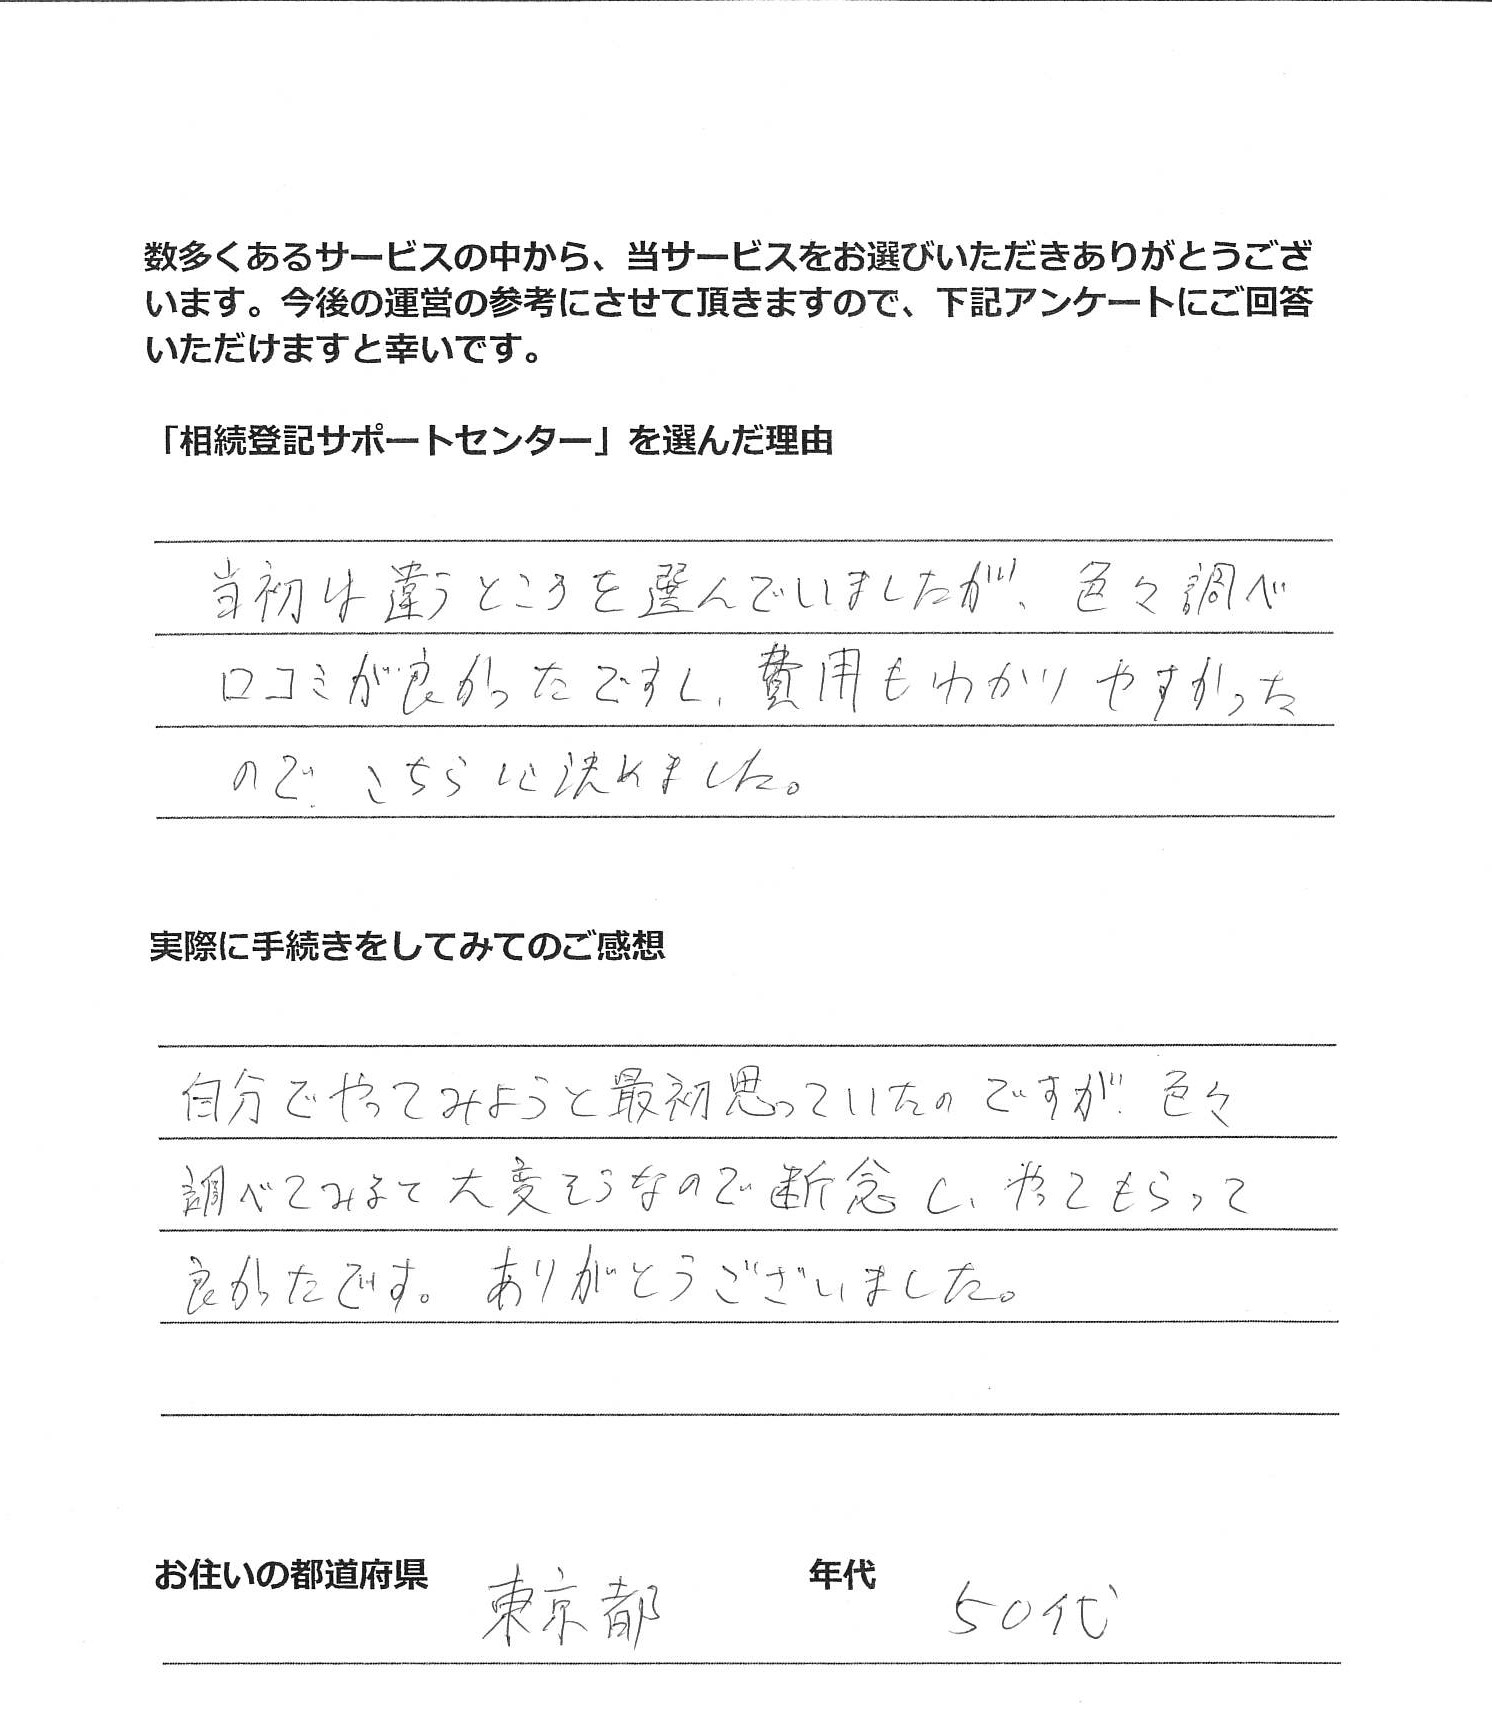 数多くあるサービスの中から、当サービスをお選びいただきありがとうござ
います。今後の運営の参考にさせて頂きますので、下記アンケートにご回答
いただけますと幸いです。
「相続登記サポートセンター」を選んだ理由
当初は違うところを選んでいましたが、色々調べ
口コミが良かったですし、費用もわかりやすかった
ので、こちらに決めました。
実際に手続きをしてみてのご感想
自分でやってみようと最初思っていたのですが、色々
調べてみるて大変そうなので断念し、やってもらって
良かったです。ありがとうございました。
お住いの都道府県 東京都 年代 50代